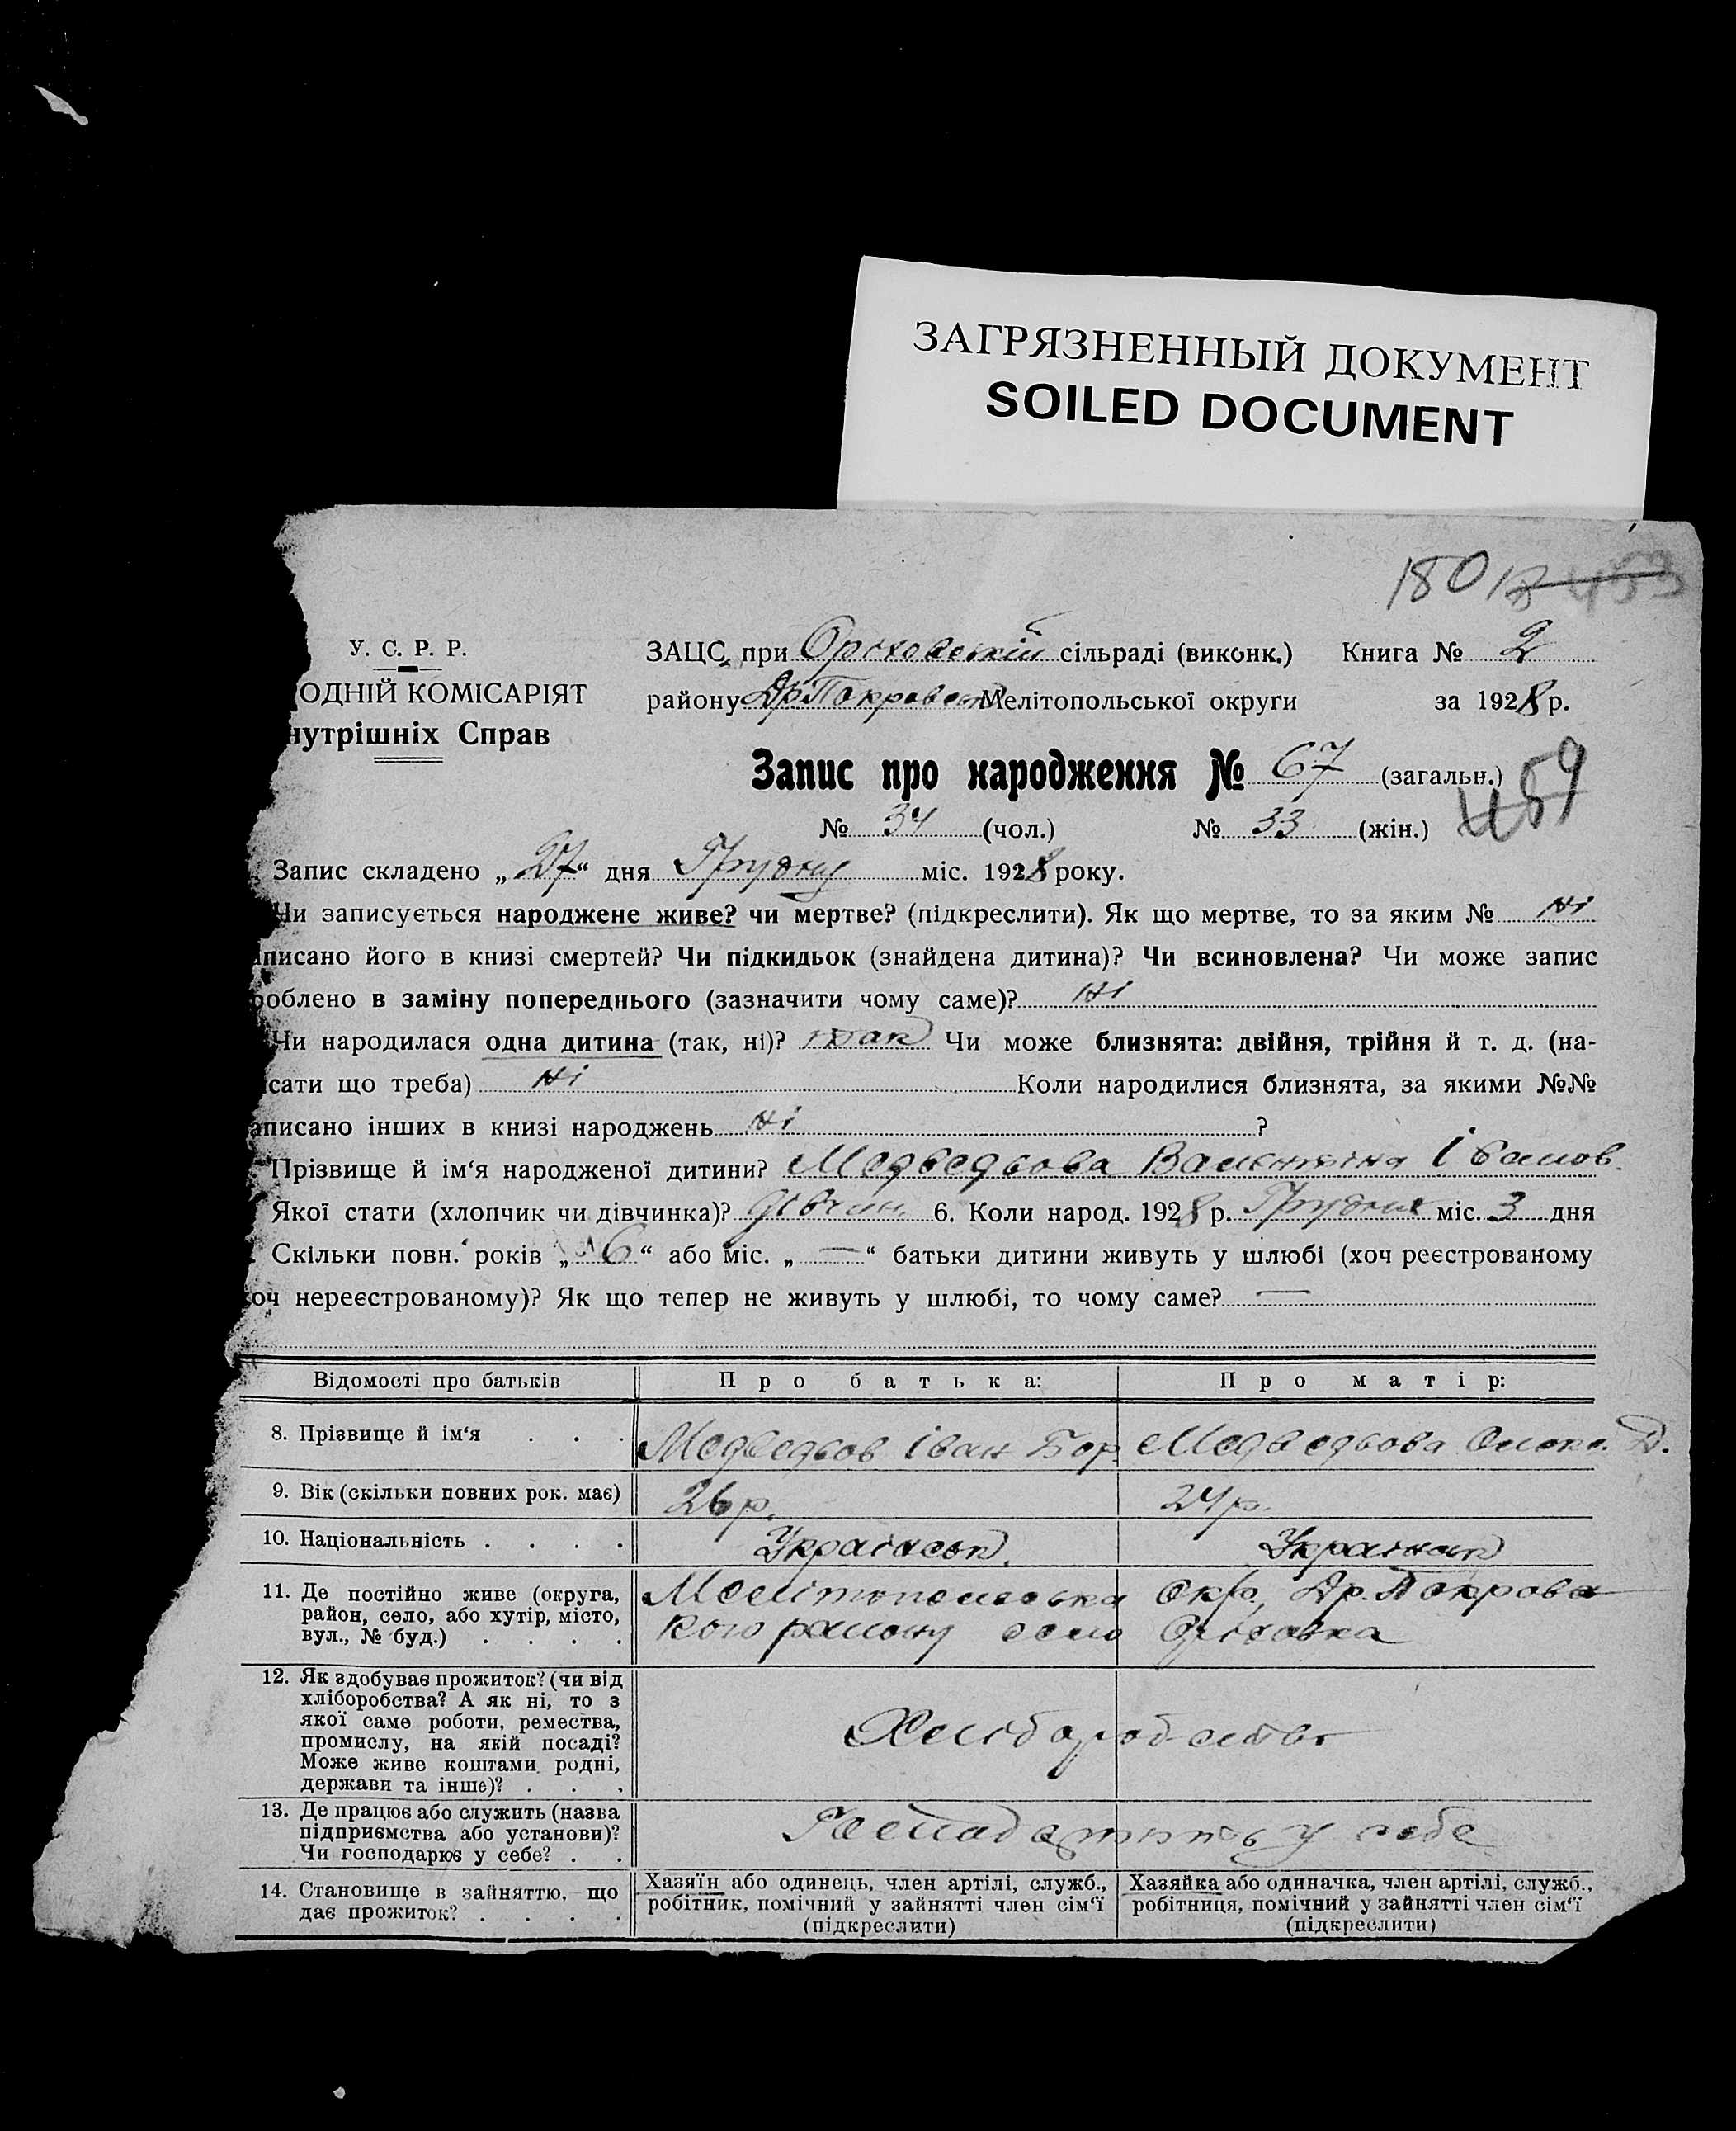 ЗАГРЯЗНЕННЫЙ ДОКУМЕНТ
SOILED DOCUMENT
180
У. С. Р. Р.
ОДНІЙ КОМІСАРІЯТ
нутрішніх Справ
ЗАЦС при Оріховській сільраді (виконк.) Книга № 2
району Др Покровськ Мелітопольської округи за 1928 р.
Запис про народження № 67 (загальн.)
459
№ 34 (чол.) № 33 (жін.)
Запис складено „27“ дня Грудня міс. 1928 року.
Чи записується народжене живе? чи мертве? (підкреслити). Як що мертве, то за яким № Ні
аписано його в книзі смертей? Чи підкидьок (знайдена дитина)? Чи всиновлена? Чи може запис
роблено в заміну попереднього (зазначити чому саме)? Ні
Чи народилася одна дитина (так, ні)? так Чи може близнята: двійня, трійня й т. д. (на-
сати що треба) Ні Коли народилися близнята, за якими №№
аписано інших в книзі народжень Ні ?
Прізвище й ім‘я народженої дитини? Медведьова Валентіна Іванов.
Якої стати (хлопчик чи дівчинка)? дівчин. 6. Коли народ. 1928 р. Грудня міс. 3 дня
Скільки повн. років „6“ або міс. „—“ батьки дитини живуть у шлюбі (хоч реєстрованому
оч нереєстрованому)? Як що тепер не живуть у шлюбі, то чому саме? —
Відомості про батьків Про батька: Про матір:
8. Прізвище й ім‘я . . . Медведьов Іван Бор. Медведьова Д.
9. Вік (скільки повних рок. має) 26 р. 24 р.
10. Національність . . . . Українськ. Українськ
11. Де постійно живе (округа, район, село, або хутір, місто, вул., № буд.) . . . . Мелітопольська Окр., Др. Покровс
кого району село Оріховка
12. Як здобуває прожиток? (чи від
хліборобства? А як ні, то з
якої саме роботи, ремества,
промислу, на якій посаді?
Може живе коштами родні,
держави та інше)? . . .
Хліборобство
13. Де працює або служить (назва
підприємства або установи)?
Чи господарює у себе? . .
у себе
14. Становище в зайняттю, що
дає прожиток? . . . .
Хазяїн або одинець, член артілі, служб.,
робітник, помічний у зайнятті член сім‘ї
(підкреслити)
Хазяйка або одиначка, член артілі, служб.,
робітниця, помічний у зайнятті член сім‘ї
(підкреслити)